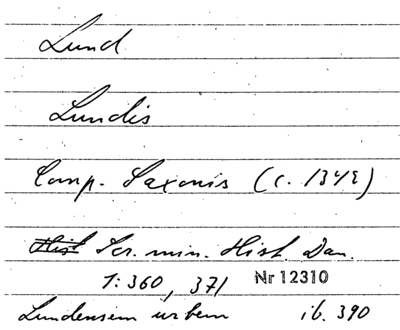 Lund
Lundis
Comp. Saxonis (c. 1342)
Hist Scr. min. Hist. Dan.
1: 360, 371 Nr 12310
Lundensem urbem ib. 390